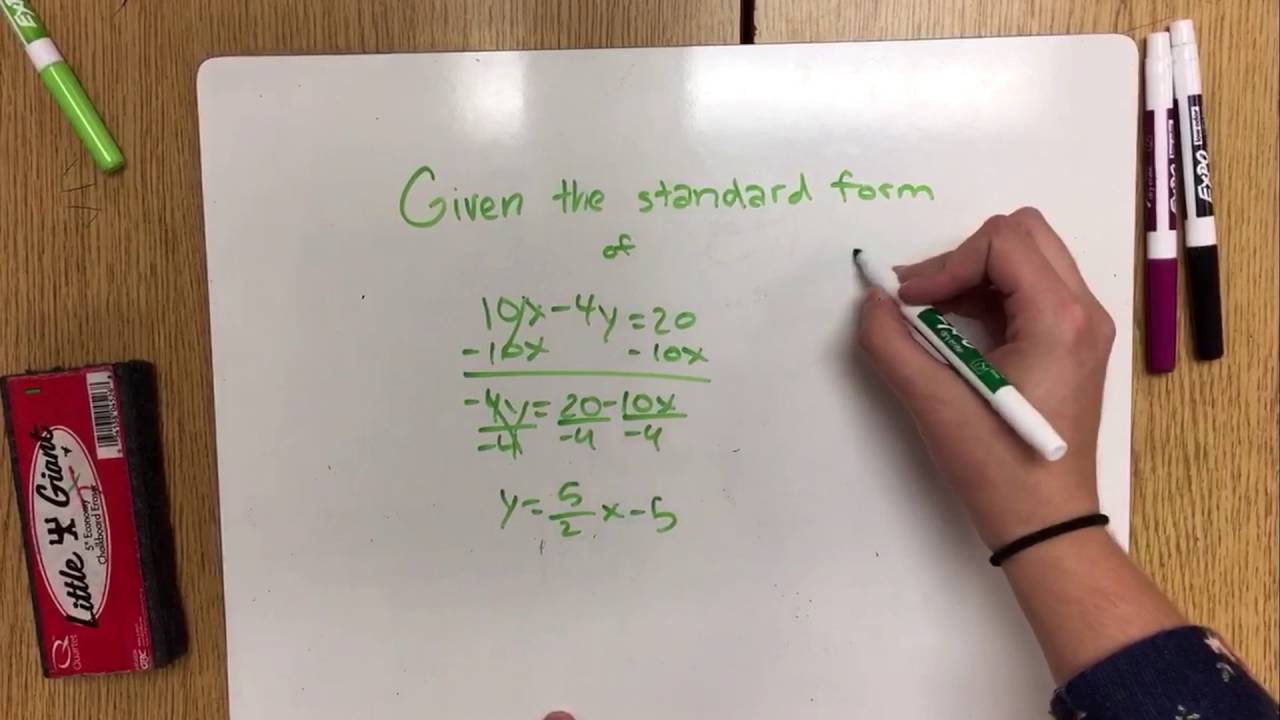 Given the standard form
of
10x-4y=20
-10x -10x
-4y=20-10x
-4 -4 -4
y=5/2x-5
Little Giant
5" Economy
Chalkboard Eraser
Quartet
EXPO
EXPO